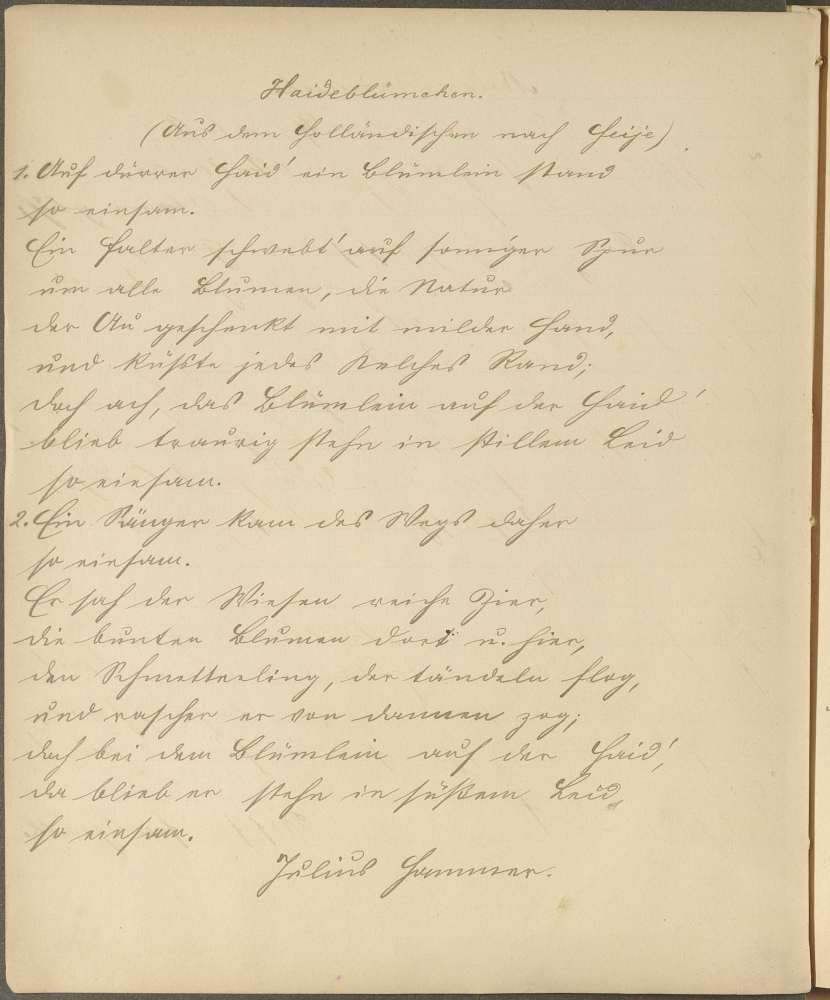 Haideblümchen.
(Aus dem Holländischen nach Heije)
1. Auf dürrer Haid' ein Blümlein stand
so einsam.
Ein Falter schwebt' auf sonniger Spur
um alle Blumen, die Natur
der Au geschenkt mit milder Hand,
und küßte jedes Kelches Rand;
doch ach, das Blümlein auf der Haid'
blieb traurig stehn in stillem Leid
so einsam.
2. Ein Sänger kam des Wegs daher
so einsam.
Er sah der Wiesen reiche Zier,
die bunten Blumen dort u. hier,
den Schmetterling, der tändeln flog,
und rascher er von dannen zog;
doch bei dem Blümlein auf der Haid',
da blieb er stehn in süßem Leid,
so einsam.
Julius Hammer.